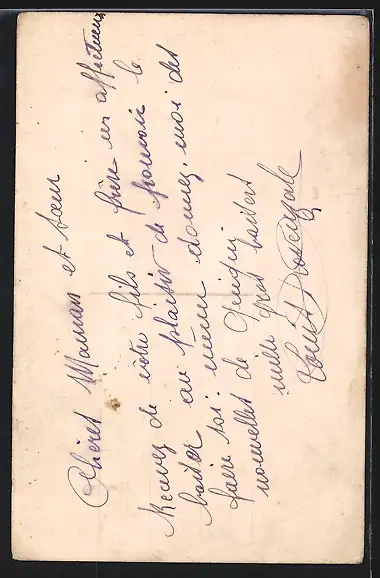 Chères Maman et sœur
Recevez de votre fils et frère un affectueux
baiser au plaisir de pouvoir le
faire soi-même donnez-moi des
nouvelles de
mille gros baisers
Louis